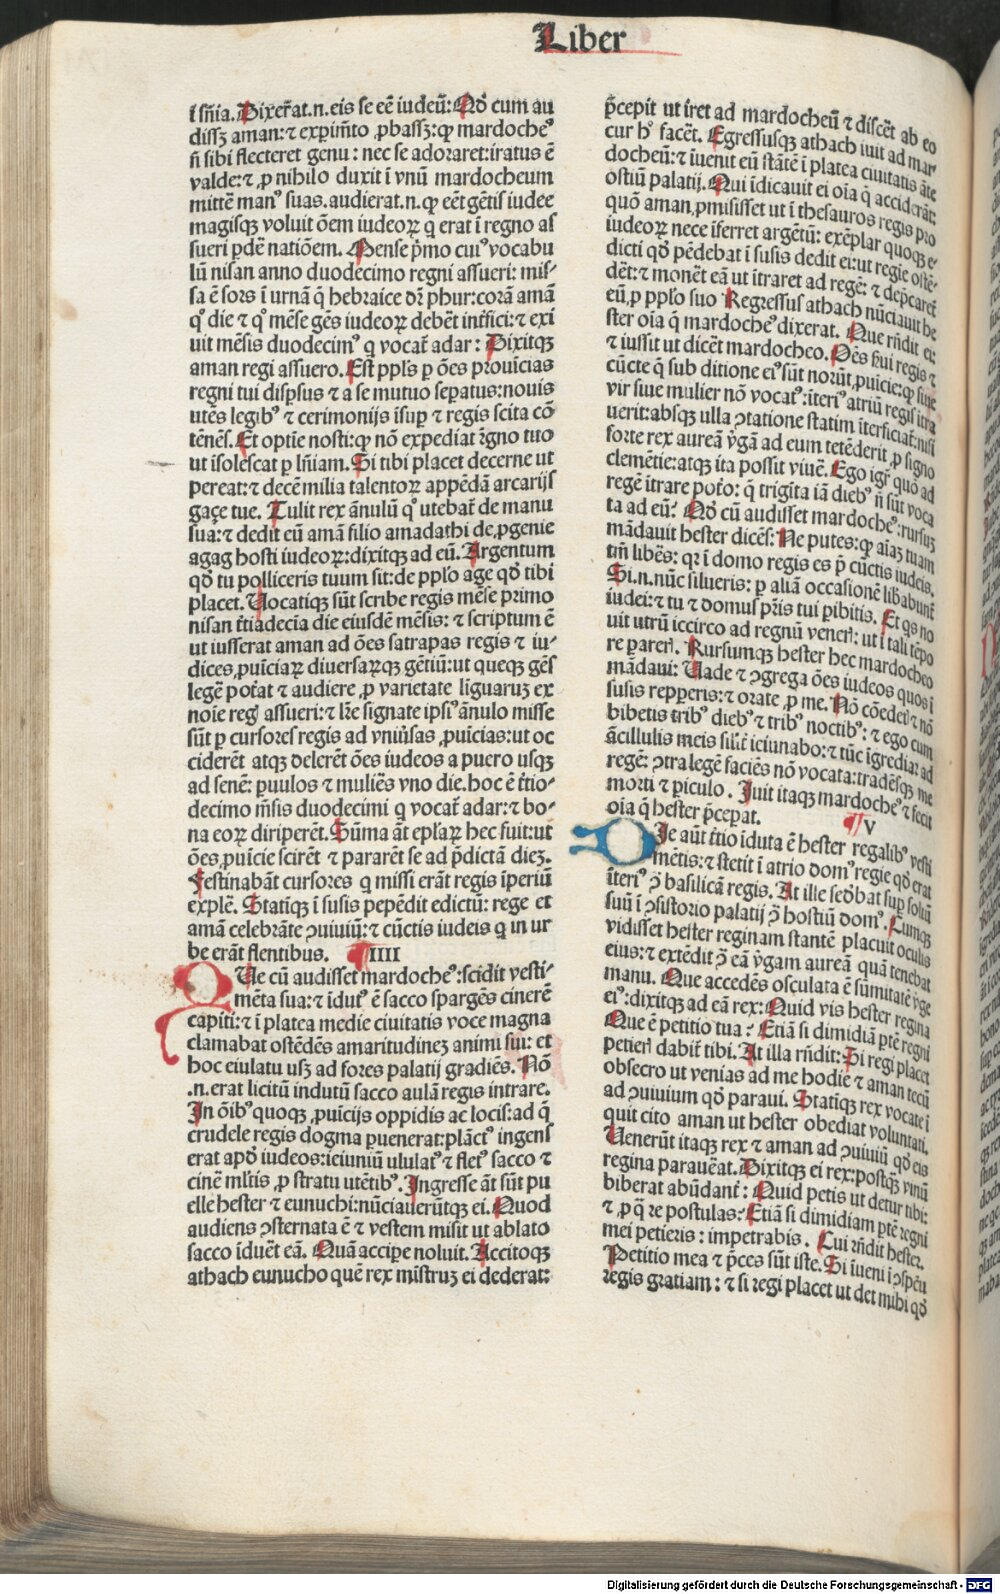 Liber
ī sn̄ia. Dixer̄at.n.eis se eē iudeū: Qd̄ cum au
dissꝫ aman: ⁊ exꝑim̄to ꝓbassꝫ: ꝙ mardocheꝰ
n̄ sibi flecteret genu: nec se adoraret: iratus ē
valde: ⁊ ꝓ nihilo duxit ī vnū mardocheum
mittē manꝰ suas. audierat.n. ꝙ eēt gētis iudee
magisqꝫ voluit ōem iudeoꝝ q̄ erat ī regno as
sueri ꝑdē natiōem. Mense pͥmo cuiꝰ vocabu
lū nisan anno duodecimo regni assueri: mis⸗
sa ē sors ī urnā q̄ hebraice dr̄ phur: corā amā
qͦ die ⁊ qͦ mēse gēs iudeoꝝ debēt int̄fici: ⁊ exi
uit mēsis duodecimꝰ q vocat̄ adar: Dixitqꝫ
aman regi assuero. Est ppl̄s ꝑ ōes prouicias
regni tui disꝑsus ⁊ a se mutuo seꝑatus: nouis
utēs legibꝰ ⁊ cerimonijs īsuꝑ ⁊ regis scita cō
tēnēs. Et optīe nosti: ꝙ nō expediat īgno tuo
ut īsolescat ꝑ ln̄iam. Si tibi placet decerne ut
pereat: ⁊ decē milia talentoꝝ appēdā arcarijs
gaçe tue. Tulit rex ānulū qͦ utebat̄ de manu
sua: ⁊ dedit eū amā filio amadathi de ꝓgenie
agag hosti iudeoꝝ: dixitqꝫ ad eū. Argentum
qd̄ tu polliceris tuum sit: de ppl̄o age qd̄ tibi
placet. Vocatiqꝫ sūt scribe regis mēse primo
nisan t̄tiadecīa die eiusdē mēsis: ⁊ scriptum ē
ut iusserat aman ad ōes satrapas regis ⁊ iu⸗
dices ꝓuīciaꝝ diuersaꝝqꝫ gētiū: ut queqꝫ gēs
legē pot̄at ⁊ audiere ꝓ varietate līguaruꝫ ex
noīe reḡ assueri: ⁊ lr̄e signate ipsiꝰ ānulo misse
sūt ꝑ cursores regis ad vniūsas ꝓuīcias: ut oc
ciderēt atqꝫ delerēt ōes iudeos a puero usqꝫ
ad senē: ꝑuulos ⁊ muliēs vno die. hoc ē t̄tio⸗
decimo m̄sis duodecimi q vocat̄ adar: ⁊ bo⸗
na eoꝝ diriperēt. Sūma āt epl̄aꝝ hec fuit: ut
ōes ꝓuīcie scirēt ⁊ pararēt se ad p̄dictā dieꝫ.
Festinabāt cursores q missi erāt regis īperiū
explē. Statīqꝫ ī susis pepēdit edictū: rege et
amā celebrāte ꝯuiuiū: ⁊ cūctis iudeis q in ur
be erāt flentibus. IIII
QUe cū audisset mardocheꝰ: scidit vesti⸗
mēta sua: ⁊ īdutꝰ ē sacco spargēs cinerē
capiti: ⁊ ī platea medie ciuitatis voce magna
clamabat ostēdēs amaritudineꝫ animi sui: et
hoc eiulatu usꝫ ad fores palatij gradiēs. Nō
.n. erat licitū indutū sacco aulā regis intrare.
In ōibꝰ quoqꝫ ꝓuīcijs oppidis ac locis: ad q̄
crudele regis dogma ꝑuenerat: plāctꝰ ingens
erat apd̄ iudeos: ieiuniū ululatꝰ ⁊ fletꝰ sacco ⁊
cinē ml̄tis ꝓ stratu utētibꝰ. Ingresse āt sūt pu
elle hester ⁊ eunuchi: nūciauerūtqꝫ ei. Quod
audiens ꝯsternata ē ⁊ vestem misit ut ablato
sacco īduēt eā. Quā accipe noluit. Accitoqꝫ
athach eunucho quē rex mīstruꝫ ei dederat:
p̄cepit ut iret ad mardocheū ⁊ discēt ab eo
cur hͦ facēt. Egressusqꝫ athach iuit ad mar
docheū: ⁊ īuenit eū stātē ī platea ciuitatis āte
ostiū palatij. Qui īdicauit ei oīa q̄ acciderāt:
quō aman ꝓmisisset ut ī thesauros regis pro
iudeoꝝ nece īferret argētū: exēplar quoqꝫ e⸗
dicti qd̄ pēdebat ī susis dedit ei: ut regie ostē⸗
dēt: ⁊ monēt eā ut ītraret ad regē: ⁊ dep̄caret̄
eū ꝓ ppl̄o suo Regressus athach nūciauit he
ster oīa q̄ mardocheꝰ dixerat. Que rn̄dit ei:
⁊ iussit ut dicēt mardocheo. Oēs s̄ui regis ⁊
cūcte q̄ sub ditione eiꝰ sūt norūt ꝓuīcie: ꝙ siue
vir siue mulier nō vocatꝰ: īteriꝰ atriū regis ītra
uerit: absqꝫ ulla ꝯtatione statim īterficiat̄: nisi
forte rex aureā v̄gā ad eum tetēderit ꝓ signo
clemētie: atqꝫ ita possit viuē. Ego igr̄ quō ad
regē ītrare poto: q̄ trigīta iā diebꝰ n̄ sūt voca
ta ad eū? Qd̄ cū audisset mardocheꝰ: rursuꝫ
mādauit hester dicēs: Ne putes: ꝙ aīaꝫ tuam
tm̄ libēs: qꝛ ī domo regis es p̄ cūctis iudeis.
Si.n. nūc silueris: ꝑ aliā occasionē libabunt̄
iudei: ⁊ tu ⁊ domus pr̄is tui ꝑibitis. Et qs no
uit utrū iccirco ad regnū vener̄: ut ī tali tēpo
re parer̄. Rursumqꝫ hester hec mardocheo
mādaui: Vade ⁊ ꝯgrega ōes iudeos quos ī
susis repperis: ⁊ orate ꝓ me. Nō cōedeī ⁊ nō
bibetis tribꝰ diebꝰ ⁊ tribꝰ noctibꝰ: ⁊ ego cum
ācillulis meis sil̄r ieiunabo: ⁊ tūc īgrediar ad
regē: ꝯtra legē faciēs nō vocata: tradēsqꝫ me
morti ⁊ ꝑiculo. Iuit itaqꝫ mardocheꝰ ⁊ fecit
oīa q̄ hester p̄ceꝑat. V
DIe aūt t̄tio īduta ē hester regalibꝰ vesti
mētis: ⁊ stetit ī atrio domꝰ regie qd̄ erat
īteriꝰ ꝯ̄ basilicā regis. At ille sed̄bat suꝑ soliū
suū ī ꝯsistorio palatij ꝯ̄ hostiū domꝰ. Cumqꝫ
vidisset hester reginam stantē placuit oculis
eius: ⁊ extēdit ꝯ̄ eā v̄gam aureā quā tenebat
manu. Que accedēs osculata ē sūmitatē v̄ge
eiꝰ: dixitqꝫ ad eā rex: Quid vis hester regina
Que ē petitio tua? Etiā si dimidiā ptē regni
petier̄ dabit̄ tibi. At illa rn̄dit: Si regi placet
obsecro ut venias ad me hodie ⁊ aman tecū
ad ꝯuiuium qd̄ paraui. Statīqꝫ rex vocate ī
quit cito aman ut hester obediat voluntati.
Venerūt itaqꝫ rex ⁊ aman ad ꝯuiuiū qd̄ eis
regina parauēat. Dixitqꝫ ei rex: postqꝫ vinū
biberat abūdant̄: Quid petis ut detur tibi:
⁊ ꝓ q̄ re postulas: Etiā si dimidiam ptē regni
mei petieris: impetrabis. Cui rn̄dit hester.
Petitio mea ⁊ p̄ces sūt iste. Si īueni ī ꝯspcū
regis gratiam: ⁊ si regi placet ut det mihi qd̄
Digitalisierung gefördert durch die Deutsche Forschungsgemeinschaft - DFG